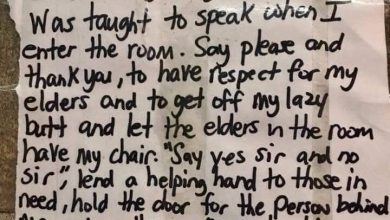 Was taught to speak when I
enter the room. Say please and
thank you, to have respect for my
elders and to get off my lazy
butt and let the elders in the room
have my chair. "Say yes sir and no
sir", lend a helping hand to those in
need, hold the door for the Person behind